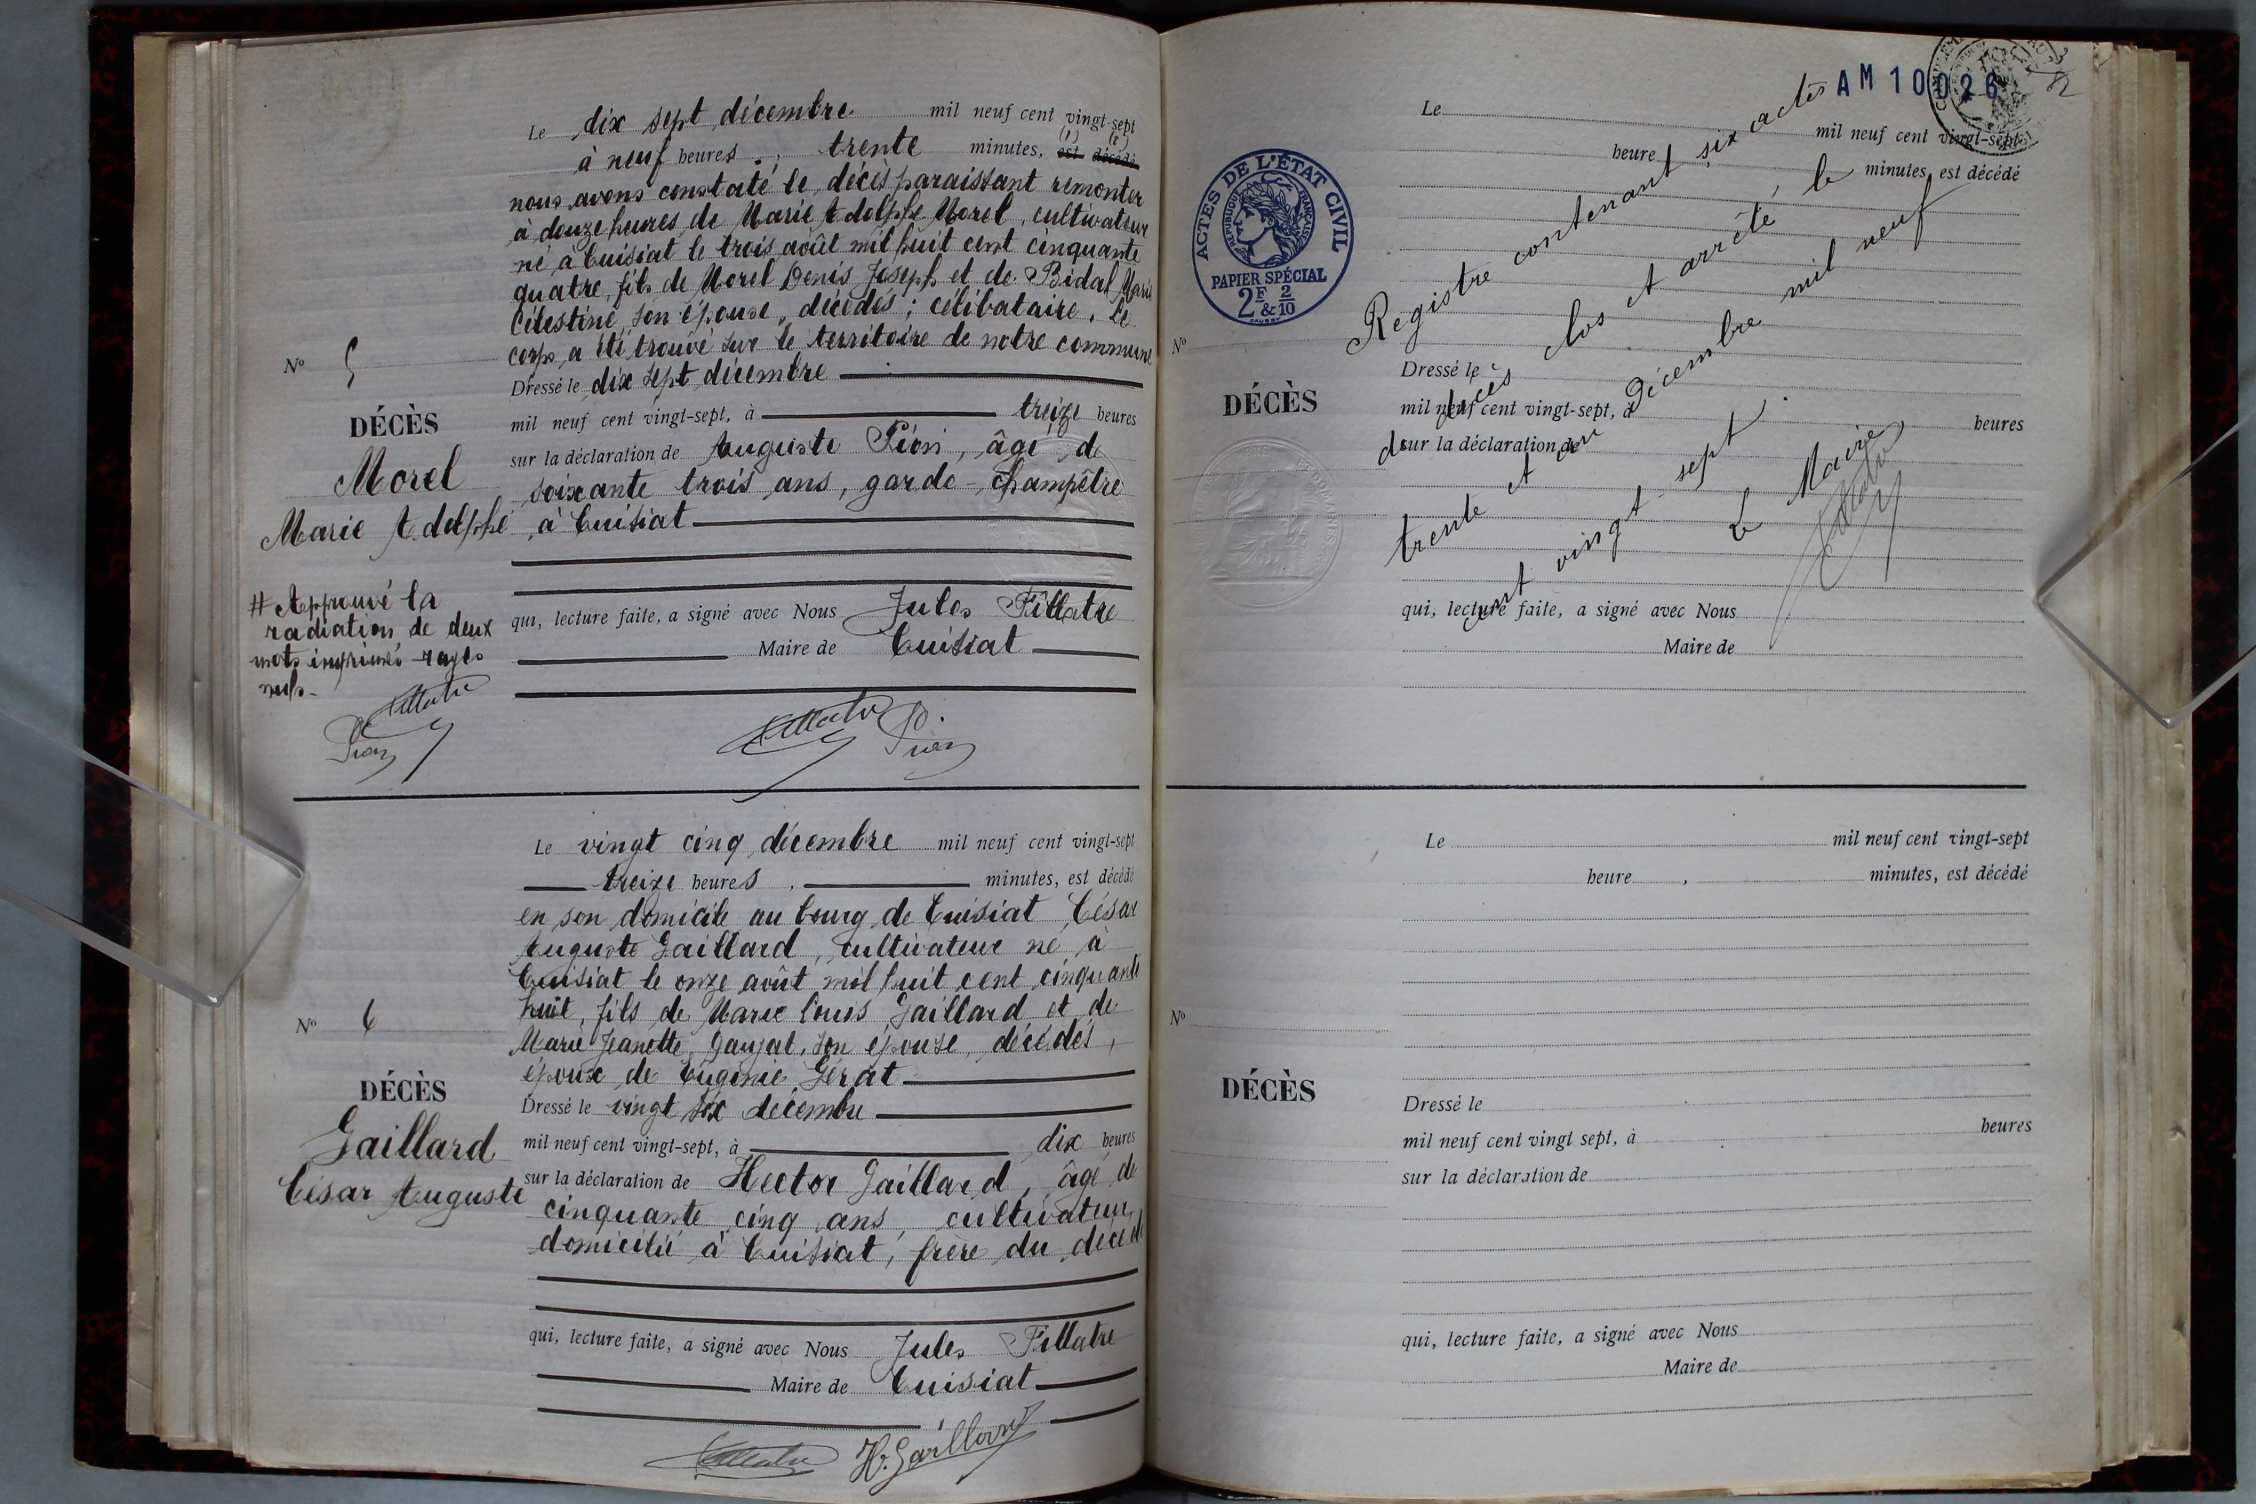 Le dix sept décembre mil neuf cent vingt-sept
(1) (2)
à neuf heures, trente minutes, est décédé
nous avons constaté le décès paraissant remonter
à douze heures, de Marie Adolphe Morel, cultivateur
né à Cuisiat le trois août mil huit cent cinquante
quatre, fils de Morel Denis Joseph et de Bidal Marie
Célestine, son épouse, décédés ; célibataire. Le
corps a été trouvé sur le territoire de notre commune
Dressé le dix sept décembre
mil neuf cent vingt-sept, à treize heures
sur la déclaration de Auguste Pion, âgé de
soixante trois ans, garde-champêtre
à Cuisiat
qui, lecture faite, a signé avec Nous Jules Fillatre
Maire de Cuisiat
Fillatre Pion
No 5
DÉCÈS
Morel
Marie Adolphe
# Approuvé la
radiation de deux
mots imprimés rayés
nuls-
Fillatre
Pion
Le vingt cinq décembre mil neuf cent vingt-sept
treize heures, minutes, est décédé
en son domicile au bourg de Cuisiat César
Auguste Gaillard, cultivateur né à
Cuisiat le onze août mil huit cent cinquante
huit, fils de Marie Louis Gaillard et de
Marie Jeanette Gaujat, son épouse, décédés,
époux de Eugénie Gérat
Dressé le vingt six décembre
mil neuf cent vingt-sept, à dix heures
sur la déclaration de Hector Gaillard, âgé de
cinquante cinq ans, cultivateur,
domicilié à Cuisiat, frère du décédé
qui, lecture faite, a signé avec Nous Jules Fillatre
Maire de Cuisiat
Fillatre H. Gaillard
No 6
DÉCÈS
Gaillard
César Auguste
AM 10026
ACTES DE L'ÉTAT CIVIL
RÉPUBLIQUE FRANÇAISE
PAPIER SPÉCIAL
2F & 2/10
Le mil neuf cent vingt-sept
heure minutes, est décédé
No
DÉCÈS
Dressé le
mil neuf cent vingt-sept, à heures
sur la déclaration de
qui, lecture faite, a signé avec Nous
Maire de
Registre contenant six actes
de décès clos et arrêté le
trente et un Décembre mil neuf
cent vingt-sept.
Le Maire,
Fillatre
Le mil neuf cent vingt-sept
heure, minutes, est décédé
No
DÉCÈS
Dressé le
mil neuf cent vingt sept, à heures
sur la déclaration de
qui, lecture faite, a signé avec Nous
Maire de